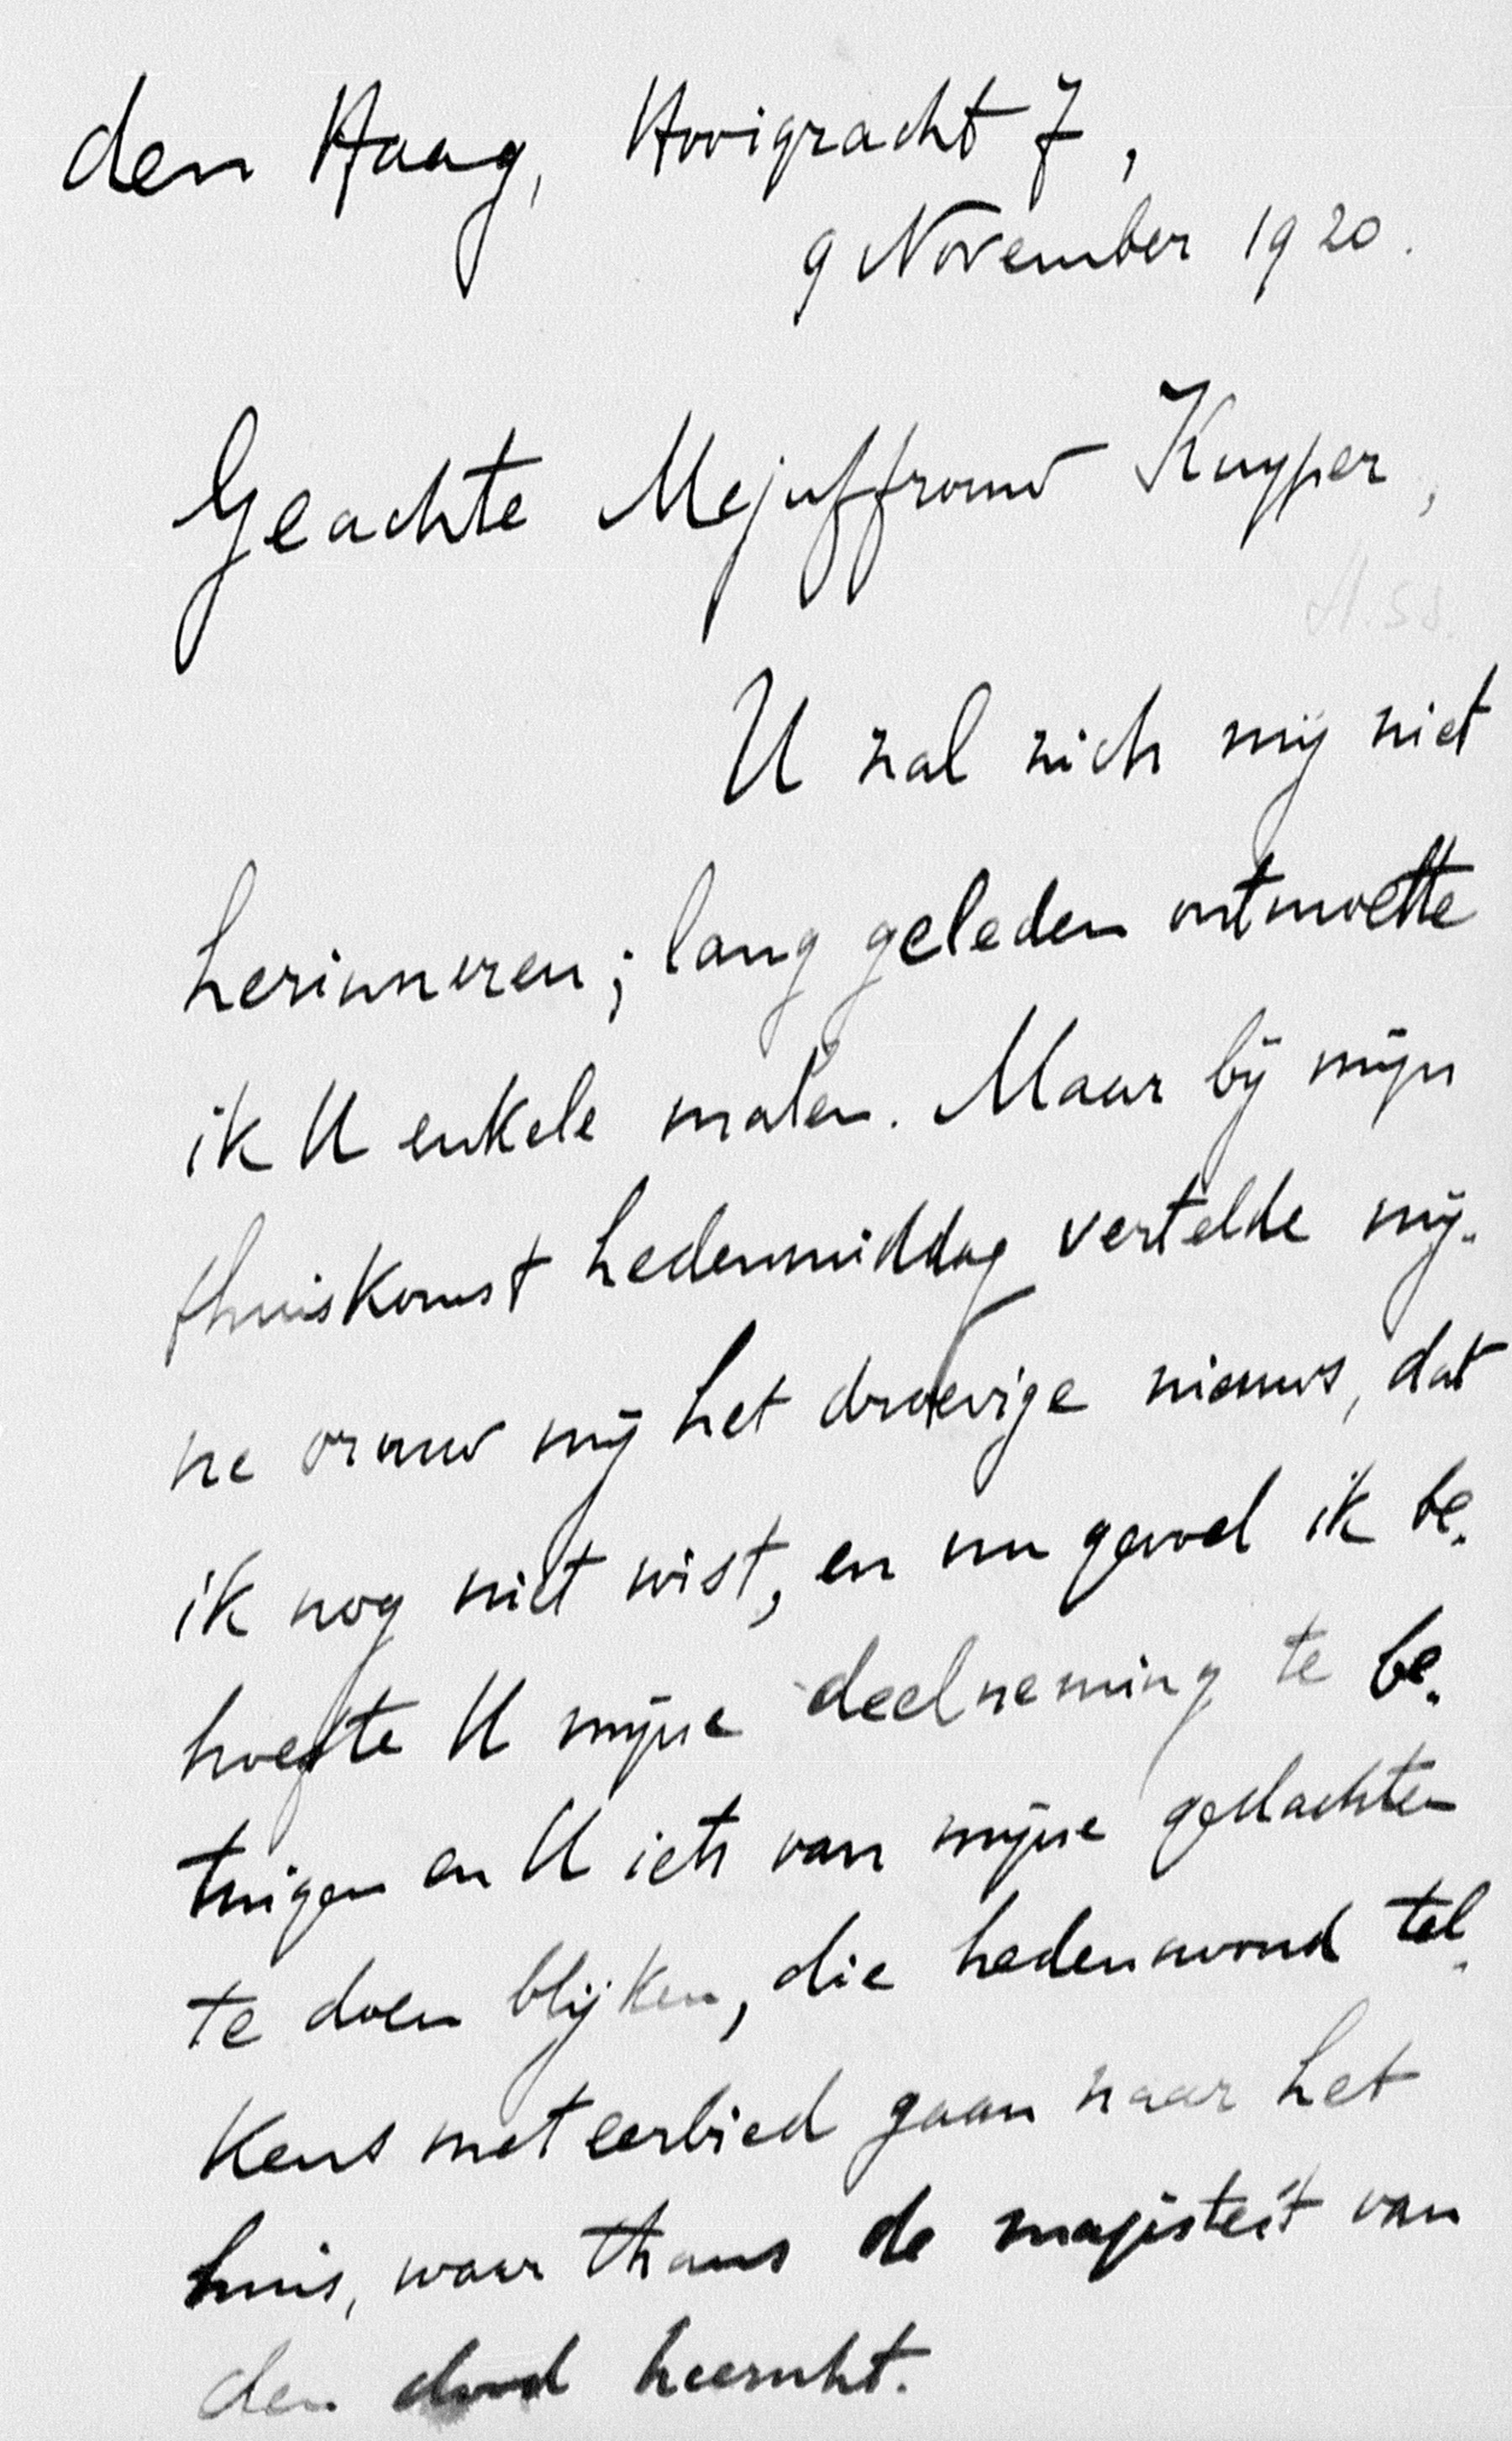 den Haag, Hooigracht 7,
9 November 1920.
Geachte Mejuffrouw Kuyper,
U zal zich mij niet
herinneren; lang geleden ontmoette
ik U enkele malen. Maar bij mijn
thuiskomst hedenmiddag vertelde mij-
ne vrouw mij het droevige nieuws, dat
ik nog niet wist, en nu gevoel ik be-
hoefte U mijne deelneming te be-
tuigen en U iets van mijne gedachten
te doen blijken, die hedenavond tel-
kens met eerbied gaan naar het
huis, waar thans de majesteit van
den dood heerscht.